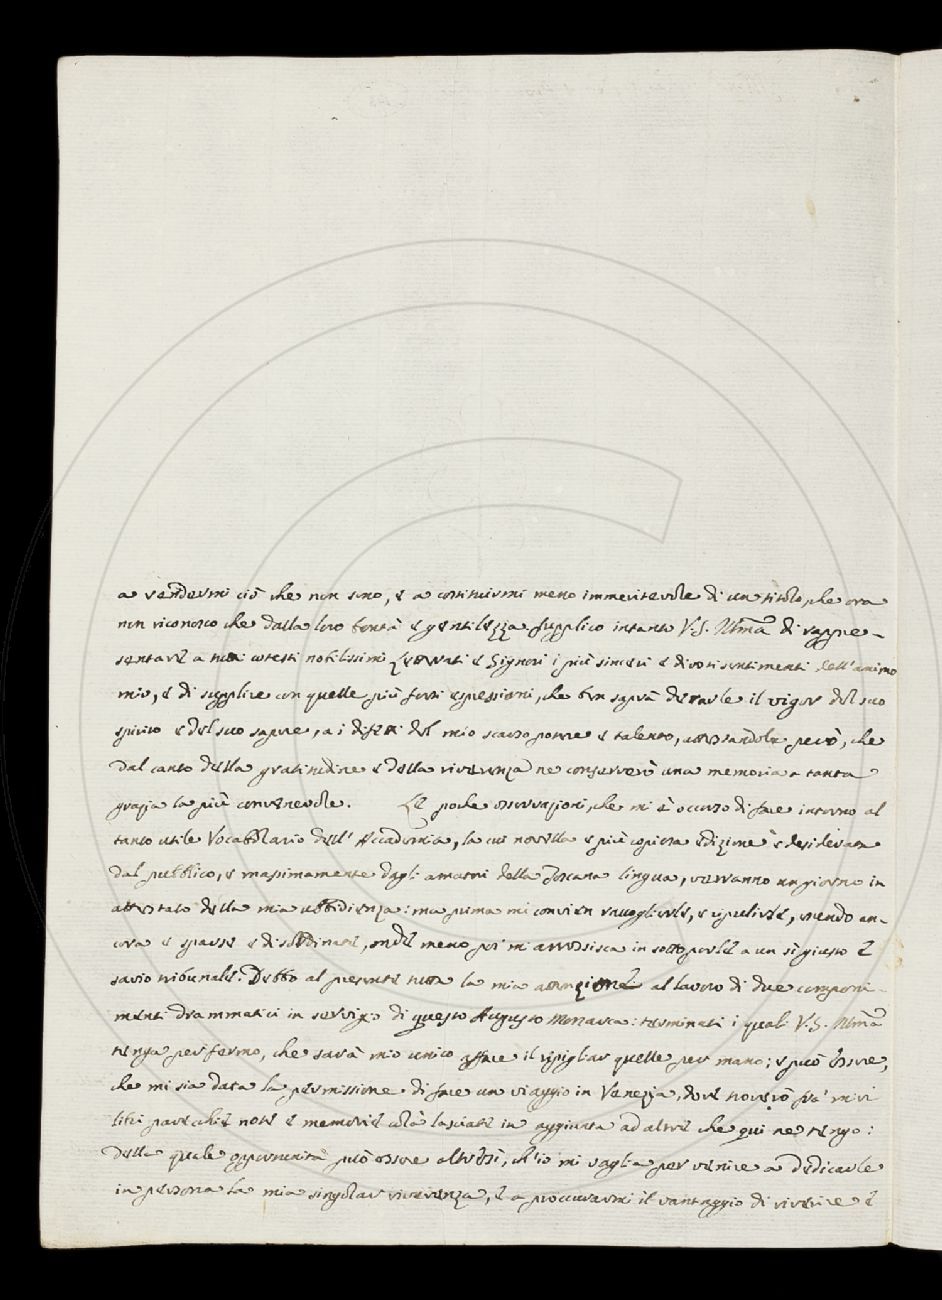 a rendermi ciò che non sono, e a costituirmi meno immeritevole di un titolo, che ora
non riconosco che dalla loro bontà e gentilezza. Supplico intanto V.S. Illma di rappre-
sentare a tutti cotesti nobilissimi Letterati e Signori i più sinceri e divoti sentimenti dell'animo
mio, e di supplire con quelle più forti espressioni, che ben saprà dettarle il vigor del suo
spirito e del suo sapere, a i difetti del mio scarso potere e talento, attestandole però, che
dal canto della gratitudine e della riverenza ne conserverò una memoria a tanta
grazia la più convenevole. Le poche osservazioni, che mi è occorso di fare intorno al
tanto utile Vocabolario dell' Accademia, la cui novella e più copiosa edizione è desiderata
dal pubblico, e massimamente dagli amatori della Toscana lingua, verranno un giorno in
attestato della mia ubbidienza: ma prima mi convien raccoglierle, e ripulirle, essendo an-
cora e sparse e disordinate, onde meno poi mi arrossisca in sottoporle a un sì giusto e
savio tribunale. Debbo al presente tutta la mia attenzione al lavoro di due componi-
menti drammatici in servigio di questo Augusto Monarca: terminati i quali V.S. Illma
tenga per fermo, che sarà mio unico affare il ripigliar quelle per mano; e può essere,
che mi sia data la permissione di fare un viaggio in Venezia, dove troverò fra' miei
libri parecchie note e memorie colà lasciate in aggiunta ad altre che qui ne tengo:
della quale opportunità può essere altresì, ch'io mi vaglia per venire a dedicarle
in persona la mia singolar riverenza, e a procurarmi il vantaggio di riverire e